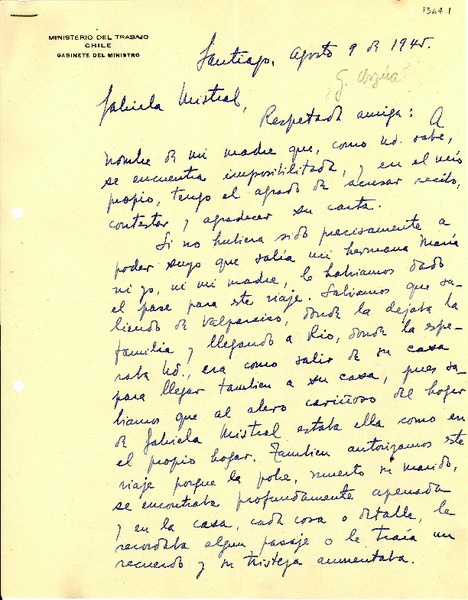 1364.1
MINISTERIO DEL TRABAJO
CHILE
GABINETE DEL MINISTRO
Santiago, Agosto 9 de 1945.
Gabriela Mistral,
Respetada amiga: A
nombre de mi madre que, como Ud. sabe,
se encuentra imposibilitada, y en el mío
propio, tengo el agrado de acusar recibo,
contestar y agradecer su carta.
Si no hubiera sido precisamente a
poder suyo que salía mi hermana María
ni yo, ni mi madre, le habíamos dado
el pase para este viaje. Sabíamos que sa-
liendo de Valparaíso, donde la dejaba la
familia y llegando a Río, donde la espe-
raba Ud., era como salir de su casa
para llegar tambien a su casa, pues sa-
biamos que al alero cariñoso del hogar
de Gabriela Mistral estaba ella como en
el propio hogar. Tambien autorizamos este
viaje porque la pobre, muerto su marido,
se encontraba profundamente apenada
y en la casa, cada cosa o detalle, le
recordaba algun pasaje o le traía un
recuerdo y su tristeza aumentaba.